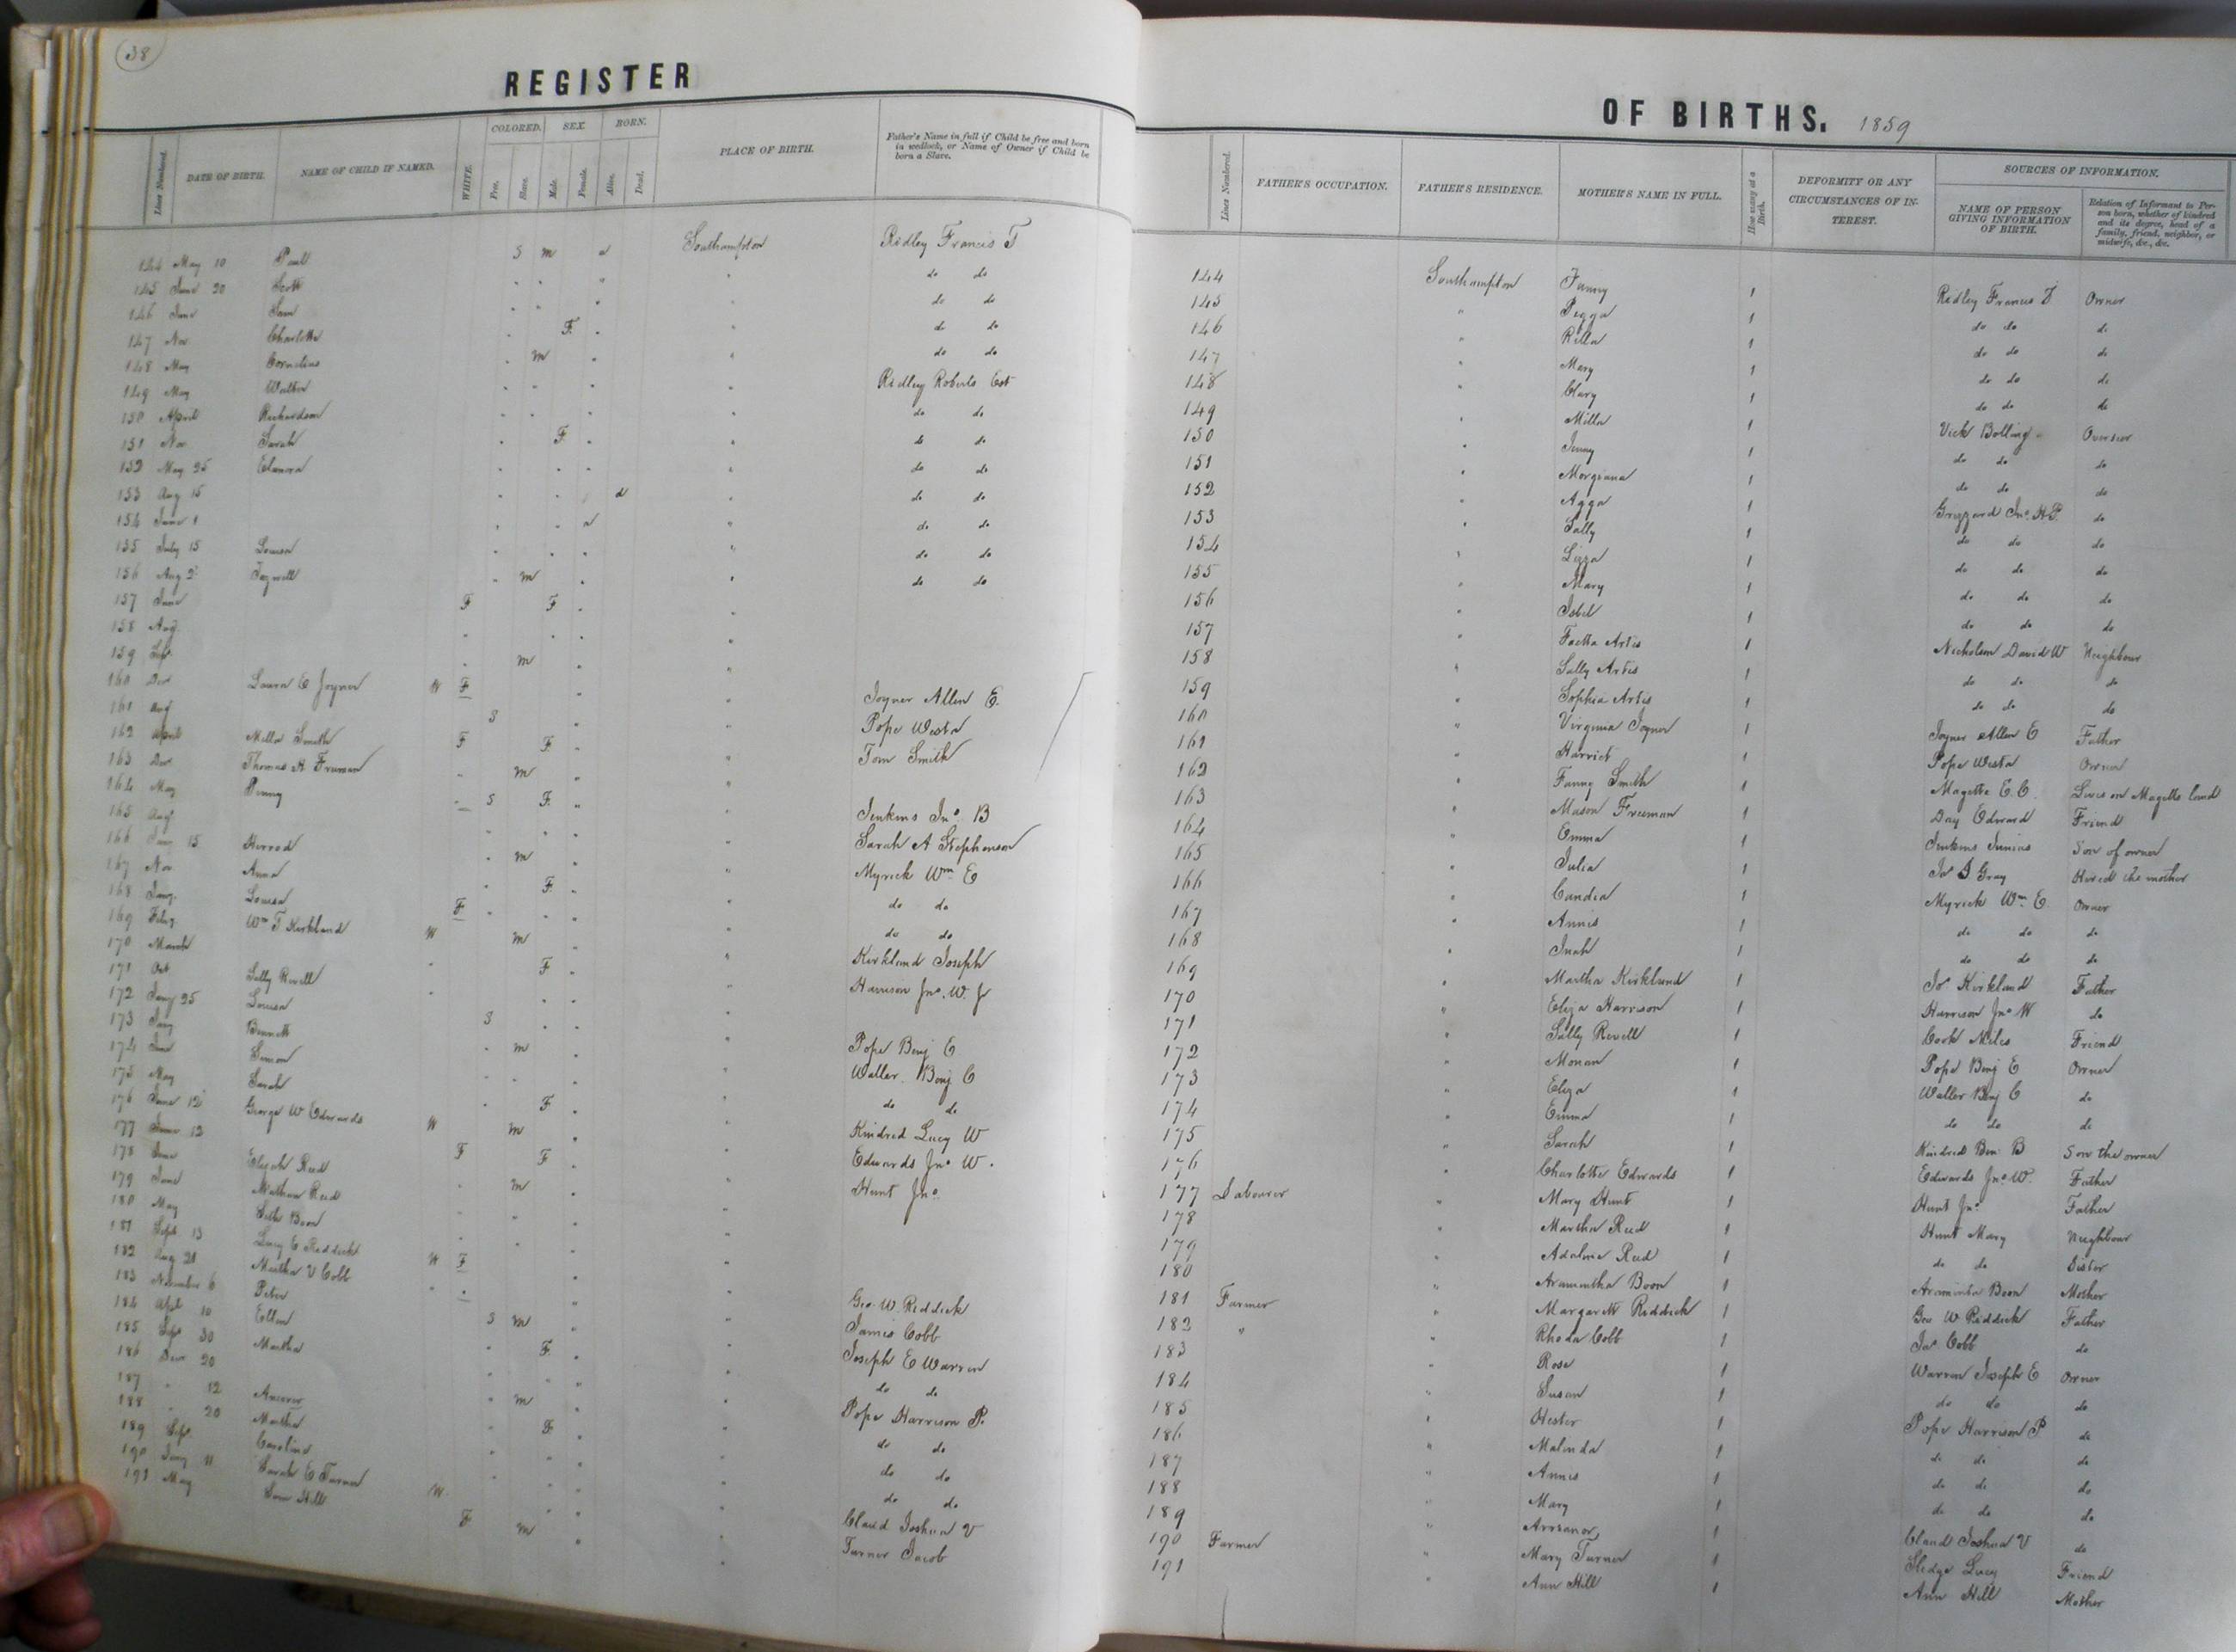 38
REGISTER
Lines Numbered. DATE OF BIRTH. NAME OF CHILD IF NAMED. WHITE. COLORED. Free. Slave. SEX. Male. Female. BORN. Alive. Dead. PLACE OF BIRTH. Father's Name in full if Child be free and born in wedlock, or Name of Owner if Child be born a Slave.
144 May 10 Paul S m a Southampton Ridley Francis T
145 June 20 Scott do do
146 June Sam do do
147 Nov Charlotte F do do
148 May Cornelius m do do
149 May Walter Ridley Roberts Est
150 April Richardson do do
151 Nov Sarah F do do
152 May 25 Elmira do do
153 Aug 15 d do do
154 June 1 a do do
155 July 15 Louisa do do
156 Aug 2 Tazwell m do do
157 June F F
158 Aug
159 Sep m
160 Dec Laura E Joyner W F Joyner Allen E.
161 Aug S Pope Weston
162 April Milla Smith F F Tom Smith
163 Dec Thomas H Freeman m
164 May Penny S F Jenkins Jno. B
165 Aug Sarah A Stephenson
166 15 Herrod m Myrick Wm E
167 Nov Anna F do do
168 Louisa F do do
169 Feby Wm T Kirkland W m Kirkland Joseph
170 March F Harrison Jno. W. J
171 Oct Sally Revell
172 Jany 25 Louisa S Pope Benj E
173 Bennett m Waller Benj C
174 June Simon do do
175 May Sarah F Kindred Lucy W
176 June 12 George W Edwards W m Edwards Jno W.
177 June 12 F F Hunt Jno.
178 June Elijah Reed m
179 June Nathan Reed
180 May Seth Boon
181 Sept 13 Lucy E Reddick W F Geo W. Riddick
182 Aug 21 Martha V Cobb James Cobb
183 November 6 Peter S m Joseph E Warren
184 Apl 10 Ellen F do do
185 Sep 30 Martha Pope Harrison P.
186 Dec 20 m do do
187 12 F do do
188 20 Martha do do
189 Sep Caroline Claud Joshua V
190 Jany 11 Sarah E Turner W Turner Jacob
191 May Sam Hill F m
OF BIRTHS. 1859
Lines Numbered. FATHER'S OCCUPATION. FATHER'S RESIDENCE. MOTHER'S NAME IN FULL. How many at a Birth. DEFORMITY OR ANY CIRCUMSTANCES OF INTEREST. SOURCES OF INFORMATION. NAME OF PERSON GIVING INFORMATION OF BIRTH. Relation of Informant to Person born, whether of kindred and its degree, head of a family, friend, neighbor, or midwife, &c., &c.
144 Southampton Fanny 1 Ridley Francis T Owner
145 " Pegga 1 do do do
146 " Rilla 1 do do do
147 " Mary 1 do do do
148 " Clary 1 do do do
149 " Milla 1 Vick Bolling Overseer
150 " Jenny 1 do do do
151 " Morgiana 1 do do do
152 " Agga 1 Grizzard Jno. H.P. do
153 " Sally 1 do do do
154 " Liza 1 do do do
155 " Mary 1 do do do
156 " Isbel 1 do do do
157 " Artis 1 Nicholson David W Neighbour
158 " Sally Artis 1 do do do
159 " Sophia Artis 1 do do do
160 " Virginia Joyner 1 Joyner Allen E Father
161 " Harriet 1 Pope Weston Owner
162 " Fanny Smith 1 Magette E.C. Lives on Magetts land
163 " Mason Freeman 1 Day Edward Friend
164 " Emma 1 Jenkins Junius Son of owner
165 " Julia 1 Jos Gray Hired the mother
166 " Candia 1 Myrick Wm. E. Owner
167 " Annis 1 do do do
168 " 1 do do do
169 " Martha Kirkland 1 Jo Kirkland Father
170 " Eliza Harrison 1 Harrison Jno W do
171 " Sally Revell 1 Cook Miles Friend
172 " 1 Pope Benj E Owner
173 " Eliza 1 Waller Benj C do
174 " Emma 1 do do do
175 " Sarah 1 Kindred Ben. B Son the owner
176 " Charlotte Edwards 1 Edwards Jno. W. Father
177 Labourer " Mary Hunt 1 Hunt Jno. Father
178 " Martha Reed 1 Hunt Mary Neighbour
179 " Adaline Reed 1 do do Sister
180 " Aramintha Boon 1 Araminta Boon Mother
181 Farmer " Margarett Riddick 1 Geo W Riddick Father
182 " " Rhoda Cobb 1 Jas Cobb do
183 " Rose 1 Warren Joseph E Owner
184 " Susan 1 do do do
185 " Hester 1 Pope Harrison P do
186 " Malinda 1 do do do
187 " Annis 1 do do do
188 " Mary 1 do do do
189 " 1 Claud Joshua V do
190 Farmer " Mary Turner 1 Sledge Lucy Friend
191 " Ann Hill 1 Ann Hill Mother